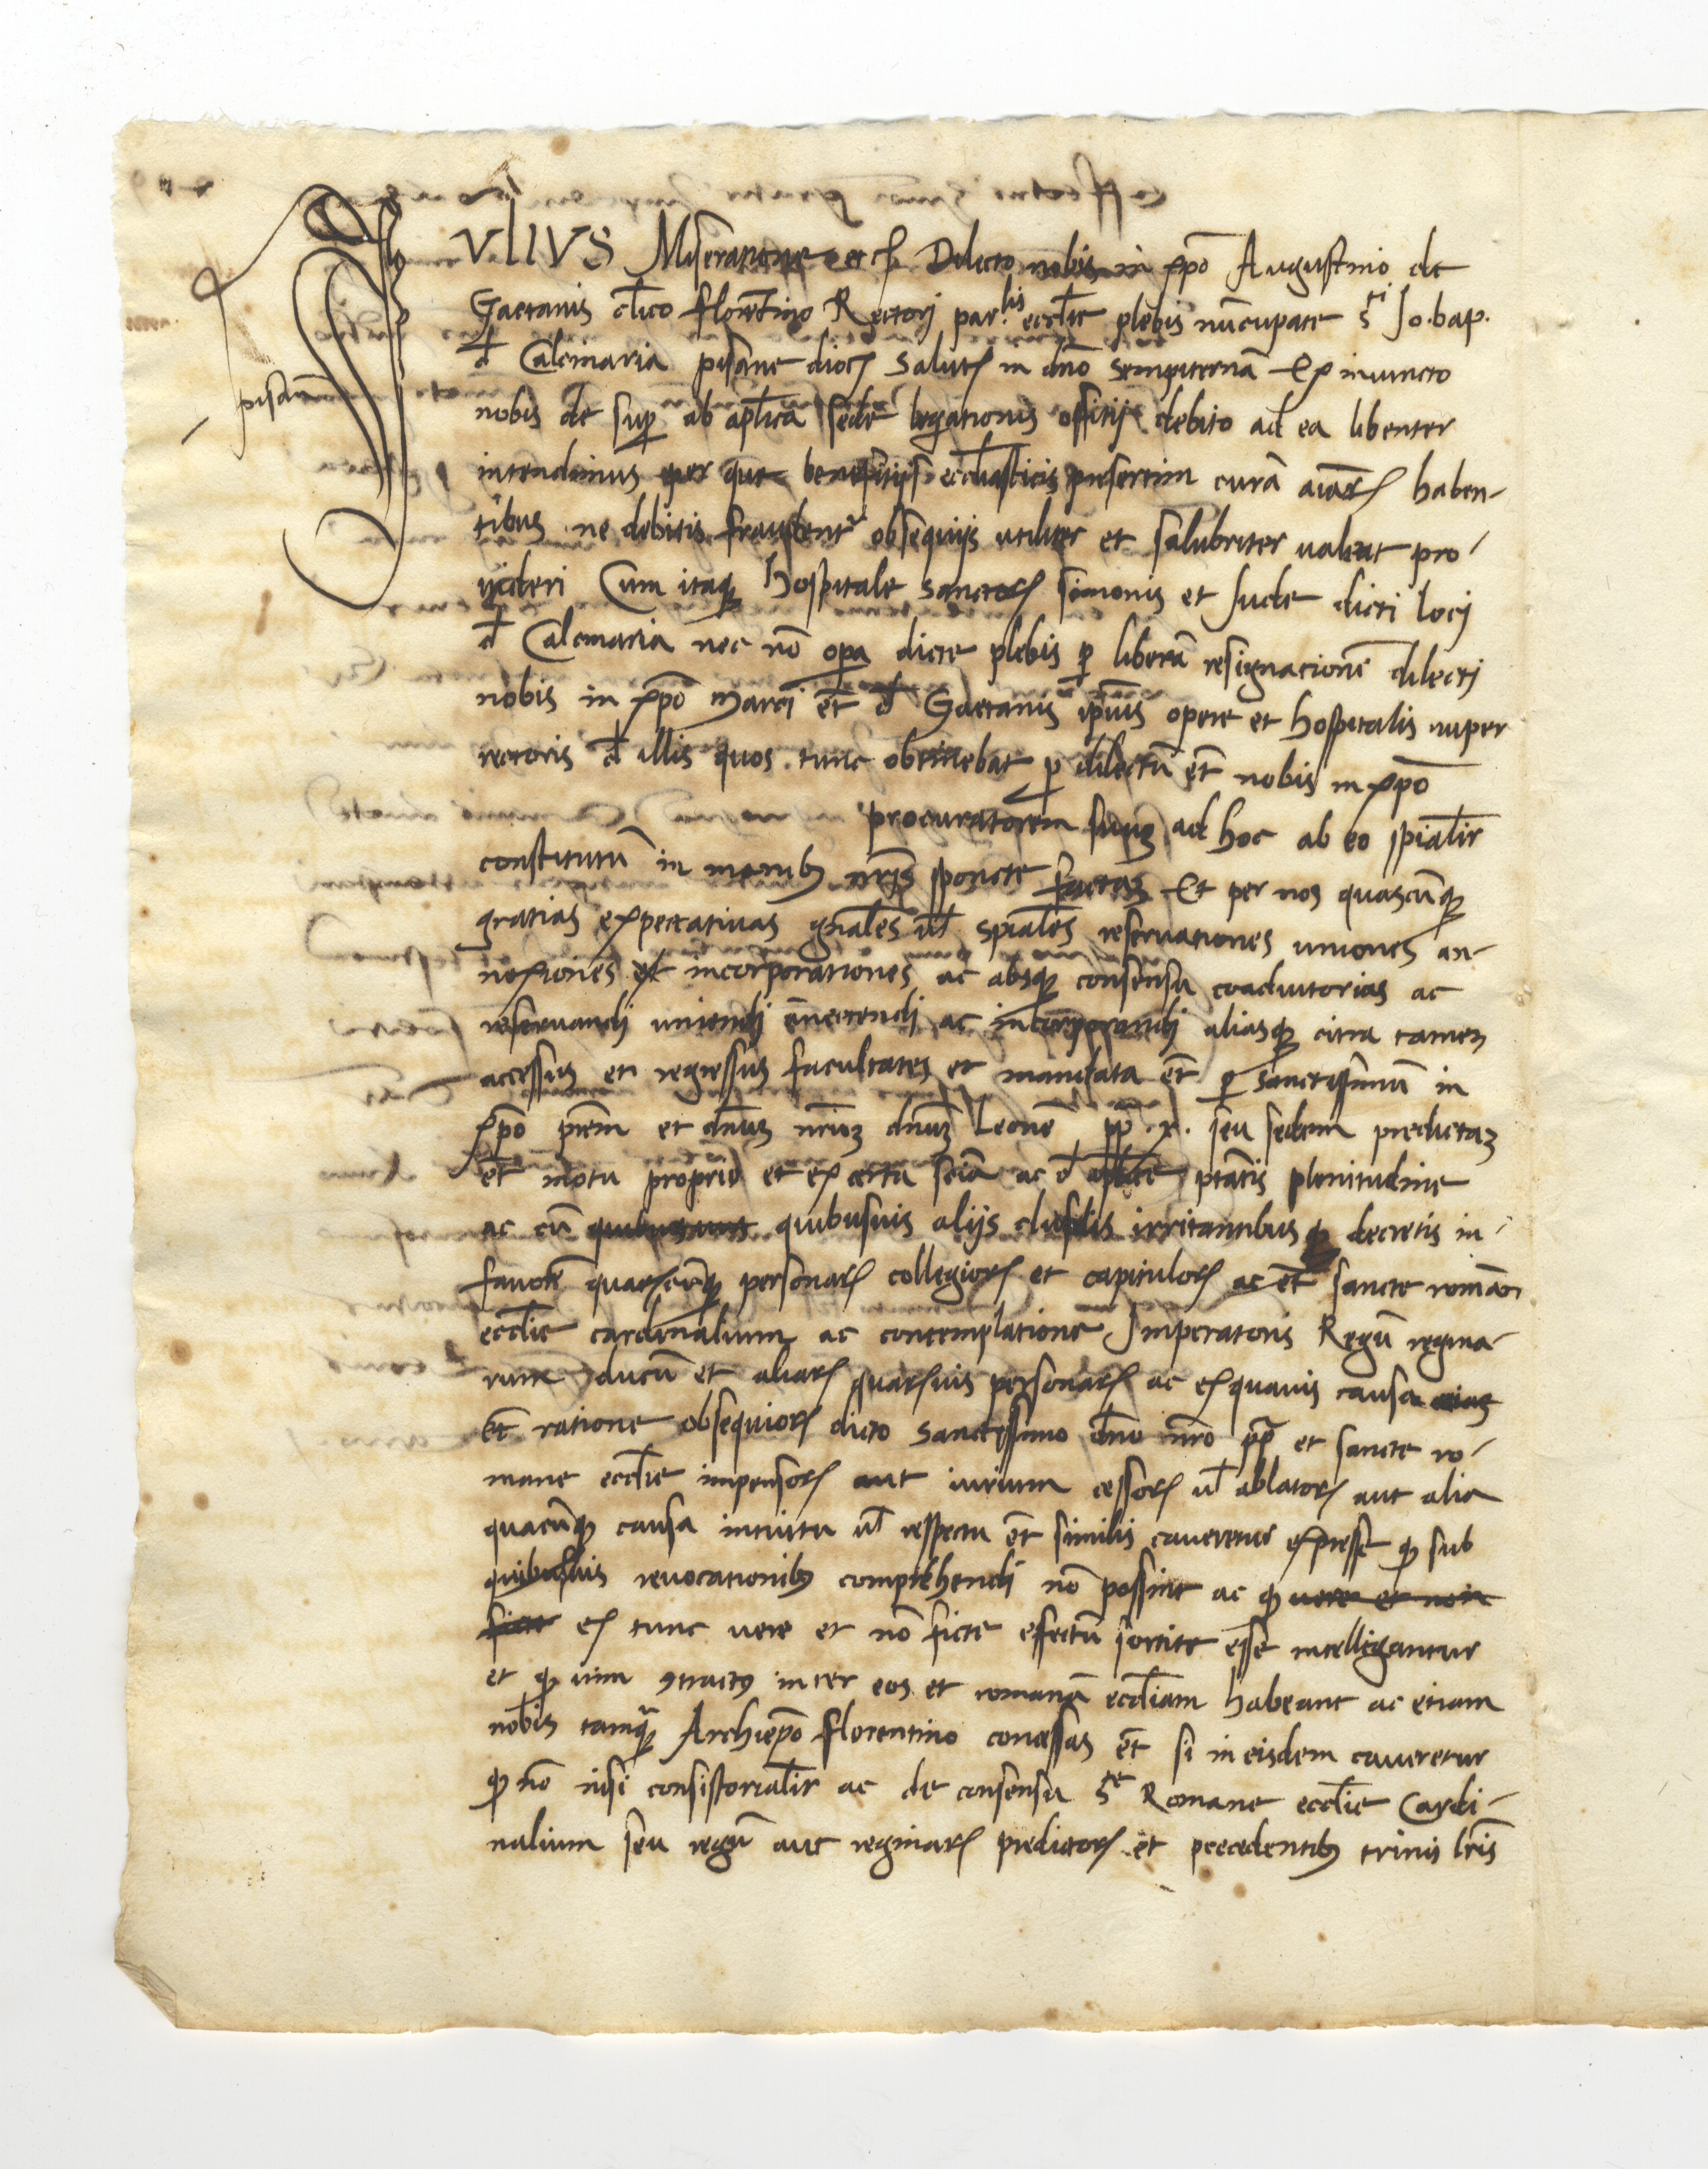 IVLIVS Miseratione etc Dilecto nobis in xpo Augustino de
Gaetanis clico florentino Rectorj par.lis ecclie plebis nuncupate Sti Jo.bap.
d Calcinaria pisane dioc salutem in dno sempiternã Ex iniuncto
pisan
nobis de sup ab aplica sede legationis offitij debito ad ea libenter
intendimus per que benefitijs ecclasticis presertim curã aiarȝ haben-
tibus ne debitis fraudent obsequijs utiliter et salubriter ualeat pro-
videri Cum itaqȝ Hospitale Sanctorȝ Simonis et Jude dicti locj
d Calcinaria nec nõ opa dicte plebis p liberã resignacionẽ dilectj
nobis in xpo Marci et d Gaetanis ipius opere et hospitalis nuper
rectoris d illis quos tunc obtinebat p dilectũ et nobis in xpo
procuratorem suuȝ ad hoc ab eo spialir
constitutũ in manibȝ nris sponte factaȝ Et per nos quascũqȝ
gratias expectatiuas gnales ul spiales reseruationes uniones an-
nexiones et incorporationes ac absqȝ consensu coadiutorias ac
reseruandj uniendj ãnectendj ac incorporandj aliasqȝ citra tameȝ
accessus et regressus facultates et mandata et p sanctissimũ in
xpo prem et dnuȝ nrũȝ dnuȝ Leonẽ pp .x. seu sedem predictaȝ
et motu proprio et ex certa scia ac d aplice ptatis plenitudine
ac cũ quibusuis quibusuis alijs clusulis irritantibus qȝ decretis in-
fauorẽ quarcũqȝ personarȝ collegiorȝ et capitulorȝ ac et sancte roman
ecclie cardinalium ac contemplatione Imperatoris Regũ regina-
rum ducũ et aliarȝ quaruis personarȝ ac ex quauis causa
et ratione obsequiorȝ dicto Sanctissimo dno nro pp et sancte ro-
mane ecclie impensorȝ aut iurium cessorȝ ul ablatorȝ aut alia
quacũqȝ causa intuitu ul respectu et similis caueretur expresse qȝ sub
quibusuis reuocationibȝ comprehendj nõ possint ac qȝ vere et non
ficte ex tunc uere et nõ ficte effectũ sortite esse intelligantur
et qȝ uim 9tractȝ inter eos et romanã eccliam habeant ac etiam
nobis tamqȝ Archiepo florentino concessas et si in eisdem caueretur
qȝ nõ nisi consistorialir ac de consensu Ste Romane ecclie Cardi-
nalium seu regũ aut reginarȝ predictorȝ et precedentibȝ trinis lris